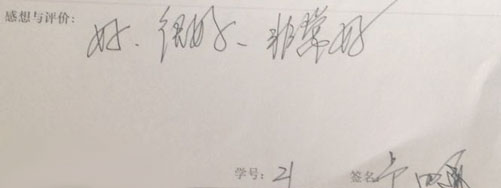 感想与评价:
好、很好、非常好
学号: 21 签名: